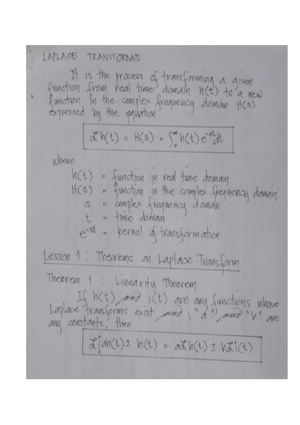 LAPLACE TRANSFORMS
It is the process of transforming a given
function from real time domain h(t) to a new
function in the complex frequency domain H(s)
expressed by the equation
ℒ h(t) = H(s) = ∫₀^∞ h(t) e^-st dt
where
h(t) = function in real time domain
H(s) = function in the complex frequency domain
s = complex frequency domain
t = time domain
e^-st = kernel of transformation
Lesson 1 : Theorems on Laplace Transform
Theorem 1 : Linearity Theorem
If h(t) and i(t) are any functions whose
Laplace transforms exist and ; "a" and "b" are
any constants; then
ℒ[ah(t) ± bi(t) = aℒh(t) ± bℒi(t)